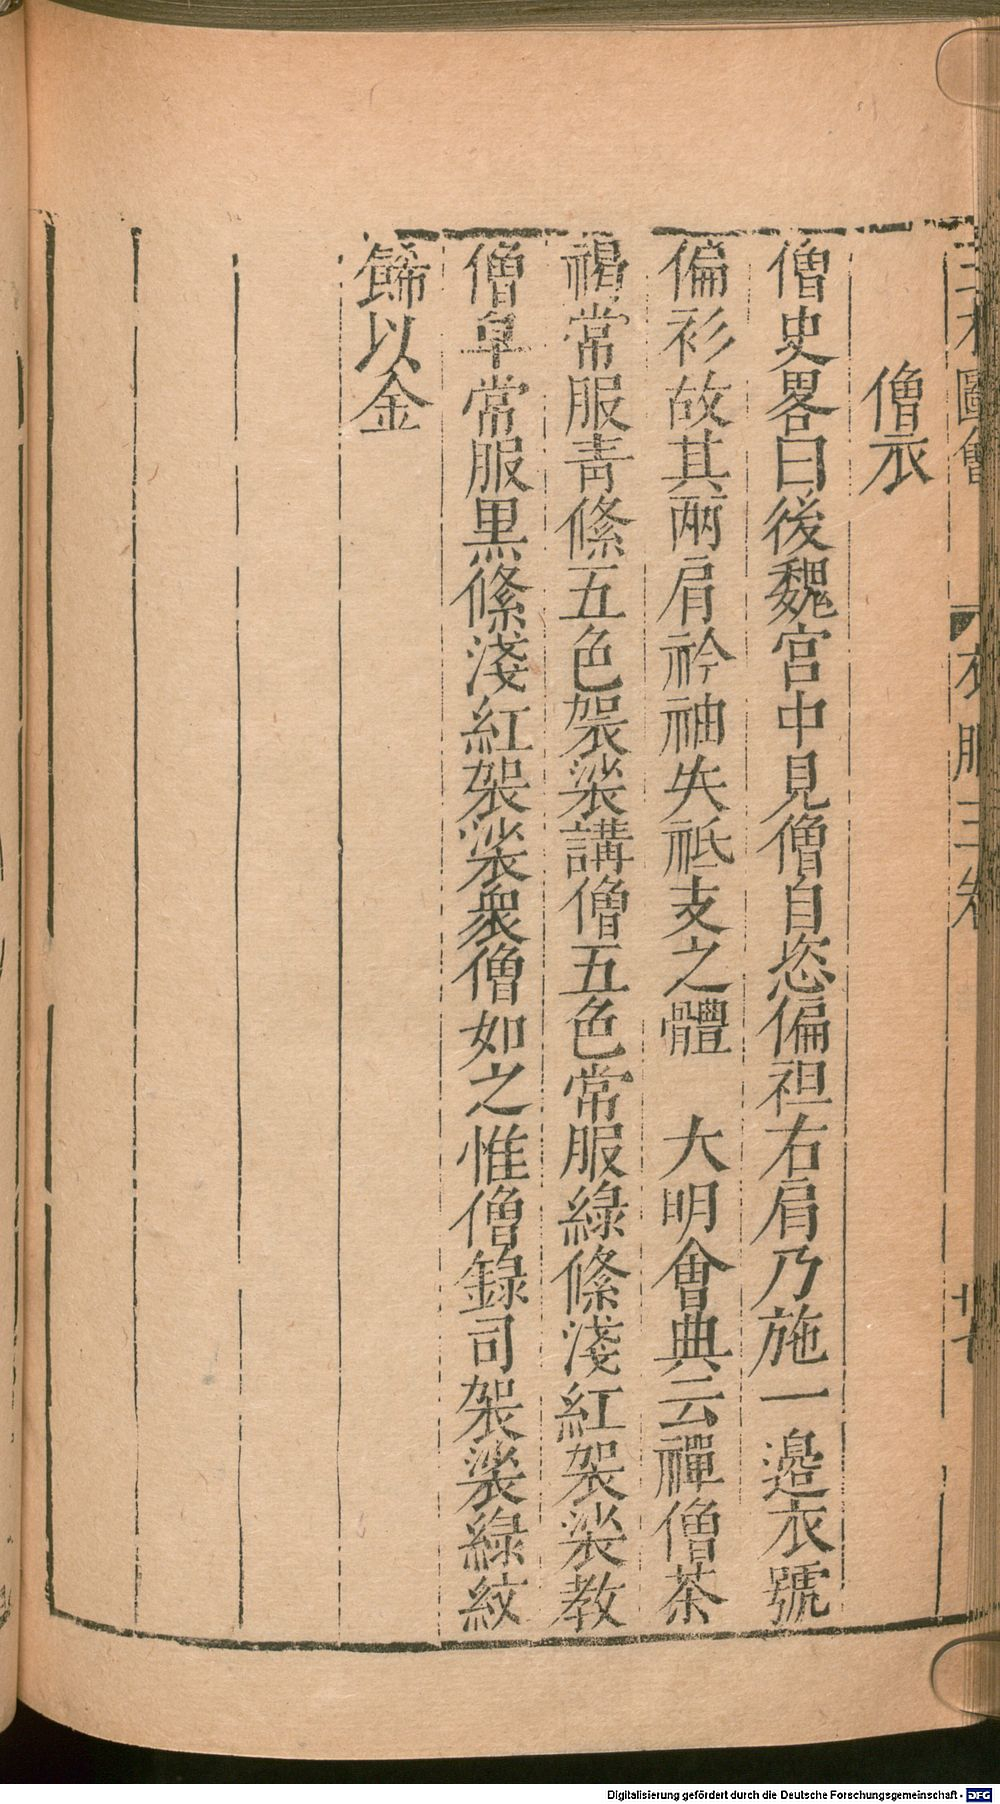 三才圖會 衣服三卷 廿七
僧衣
僧史畧曰後魏宮中見僧自恣偏袒右肩乃施一邉衣號
偏衫故其兩肩衿袖失祗支之體 大明會典云禪僧茶
褐常服青絛五色袈裟講僧五色常服綠絛淺紅袈裟教
僧皁常服黒絛淺紅袈裟衆僧如之惟僧錄司袈裟綠紋
餙以金
Digitalisierung gefördert durch die Deutsche Forschungsgemeinschaft - DFG